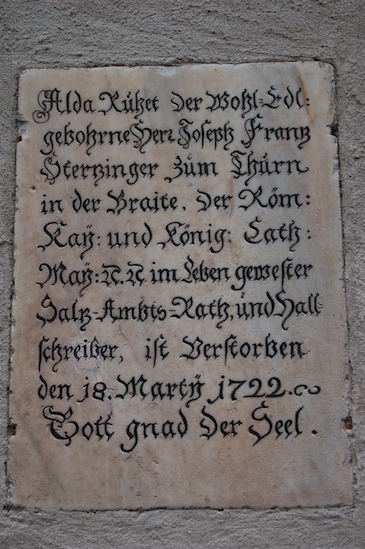 Alda Rühet Der Wohl-Edl:
gebohrne Herr Joseph Frantz
Stertzinger züm Thürn
in der Braite. Der Röm:
Kaÿ: und König: Cath:
Maÿ: im Leben gewester
Saltz-Ambts-Rath, ünd Hall
schreiber, ist Verstorben
den 18. Martÿ 1722.
Gott gnad der Seel.